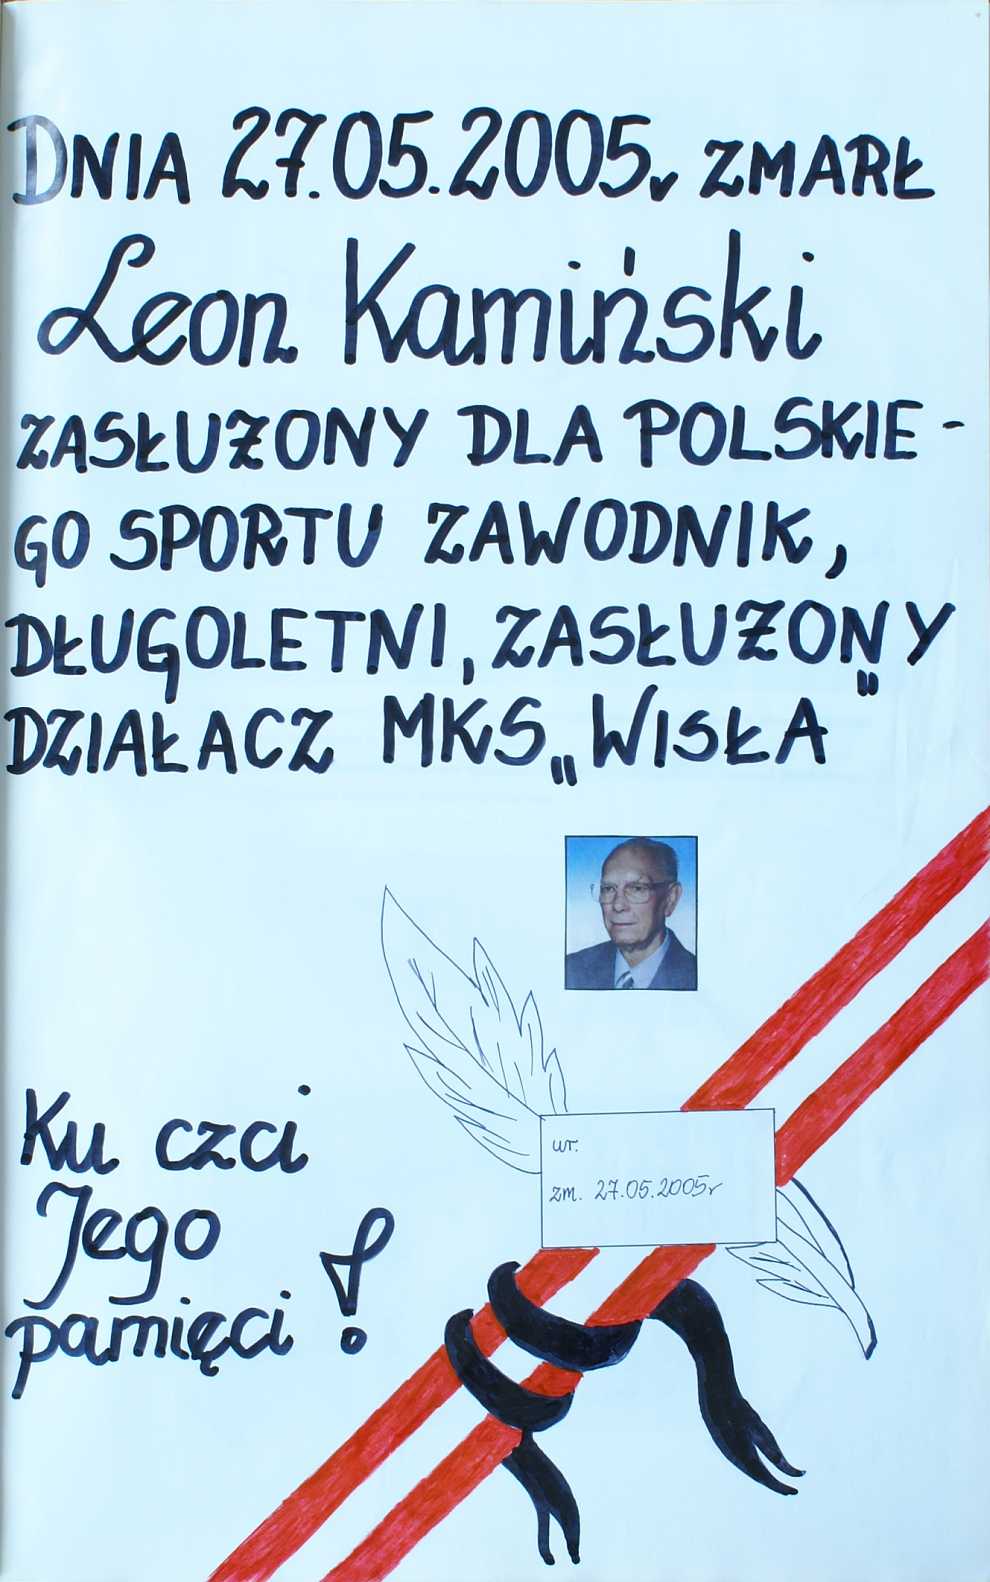 DNIA 27.05.2005r ZMARŁ
Leon Kamiński
ZASŁUŻONY DLA POLSKIE-
GO SPORTU ZAWODNIK,
DŁUGOLETNI, ZASŁUŻONY
DZIAŁACZ MKS „WISŁA"
ur.
zm. 27.05.2005r
Ku czci
Jego
pamięci!